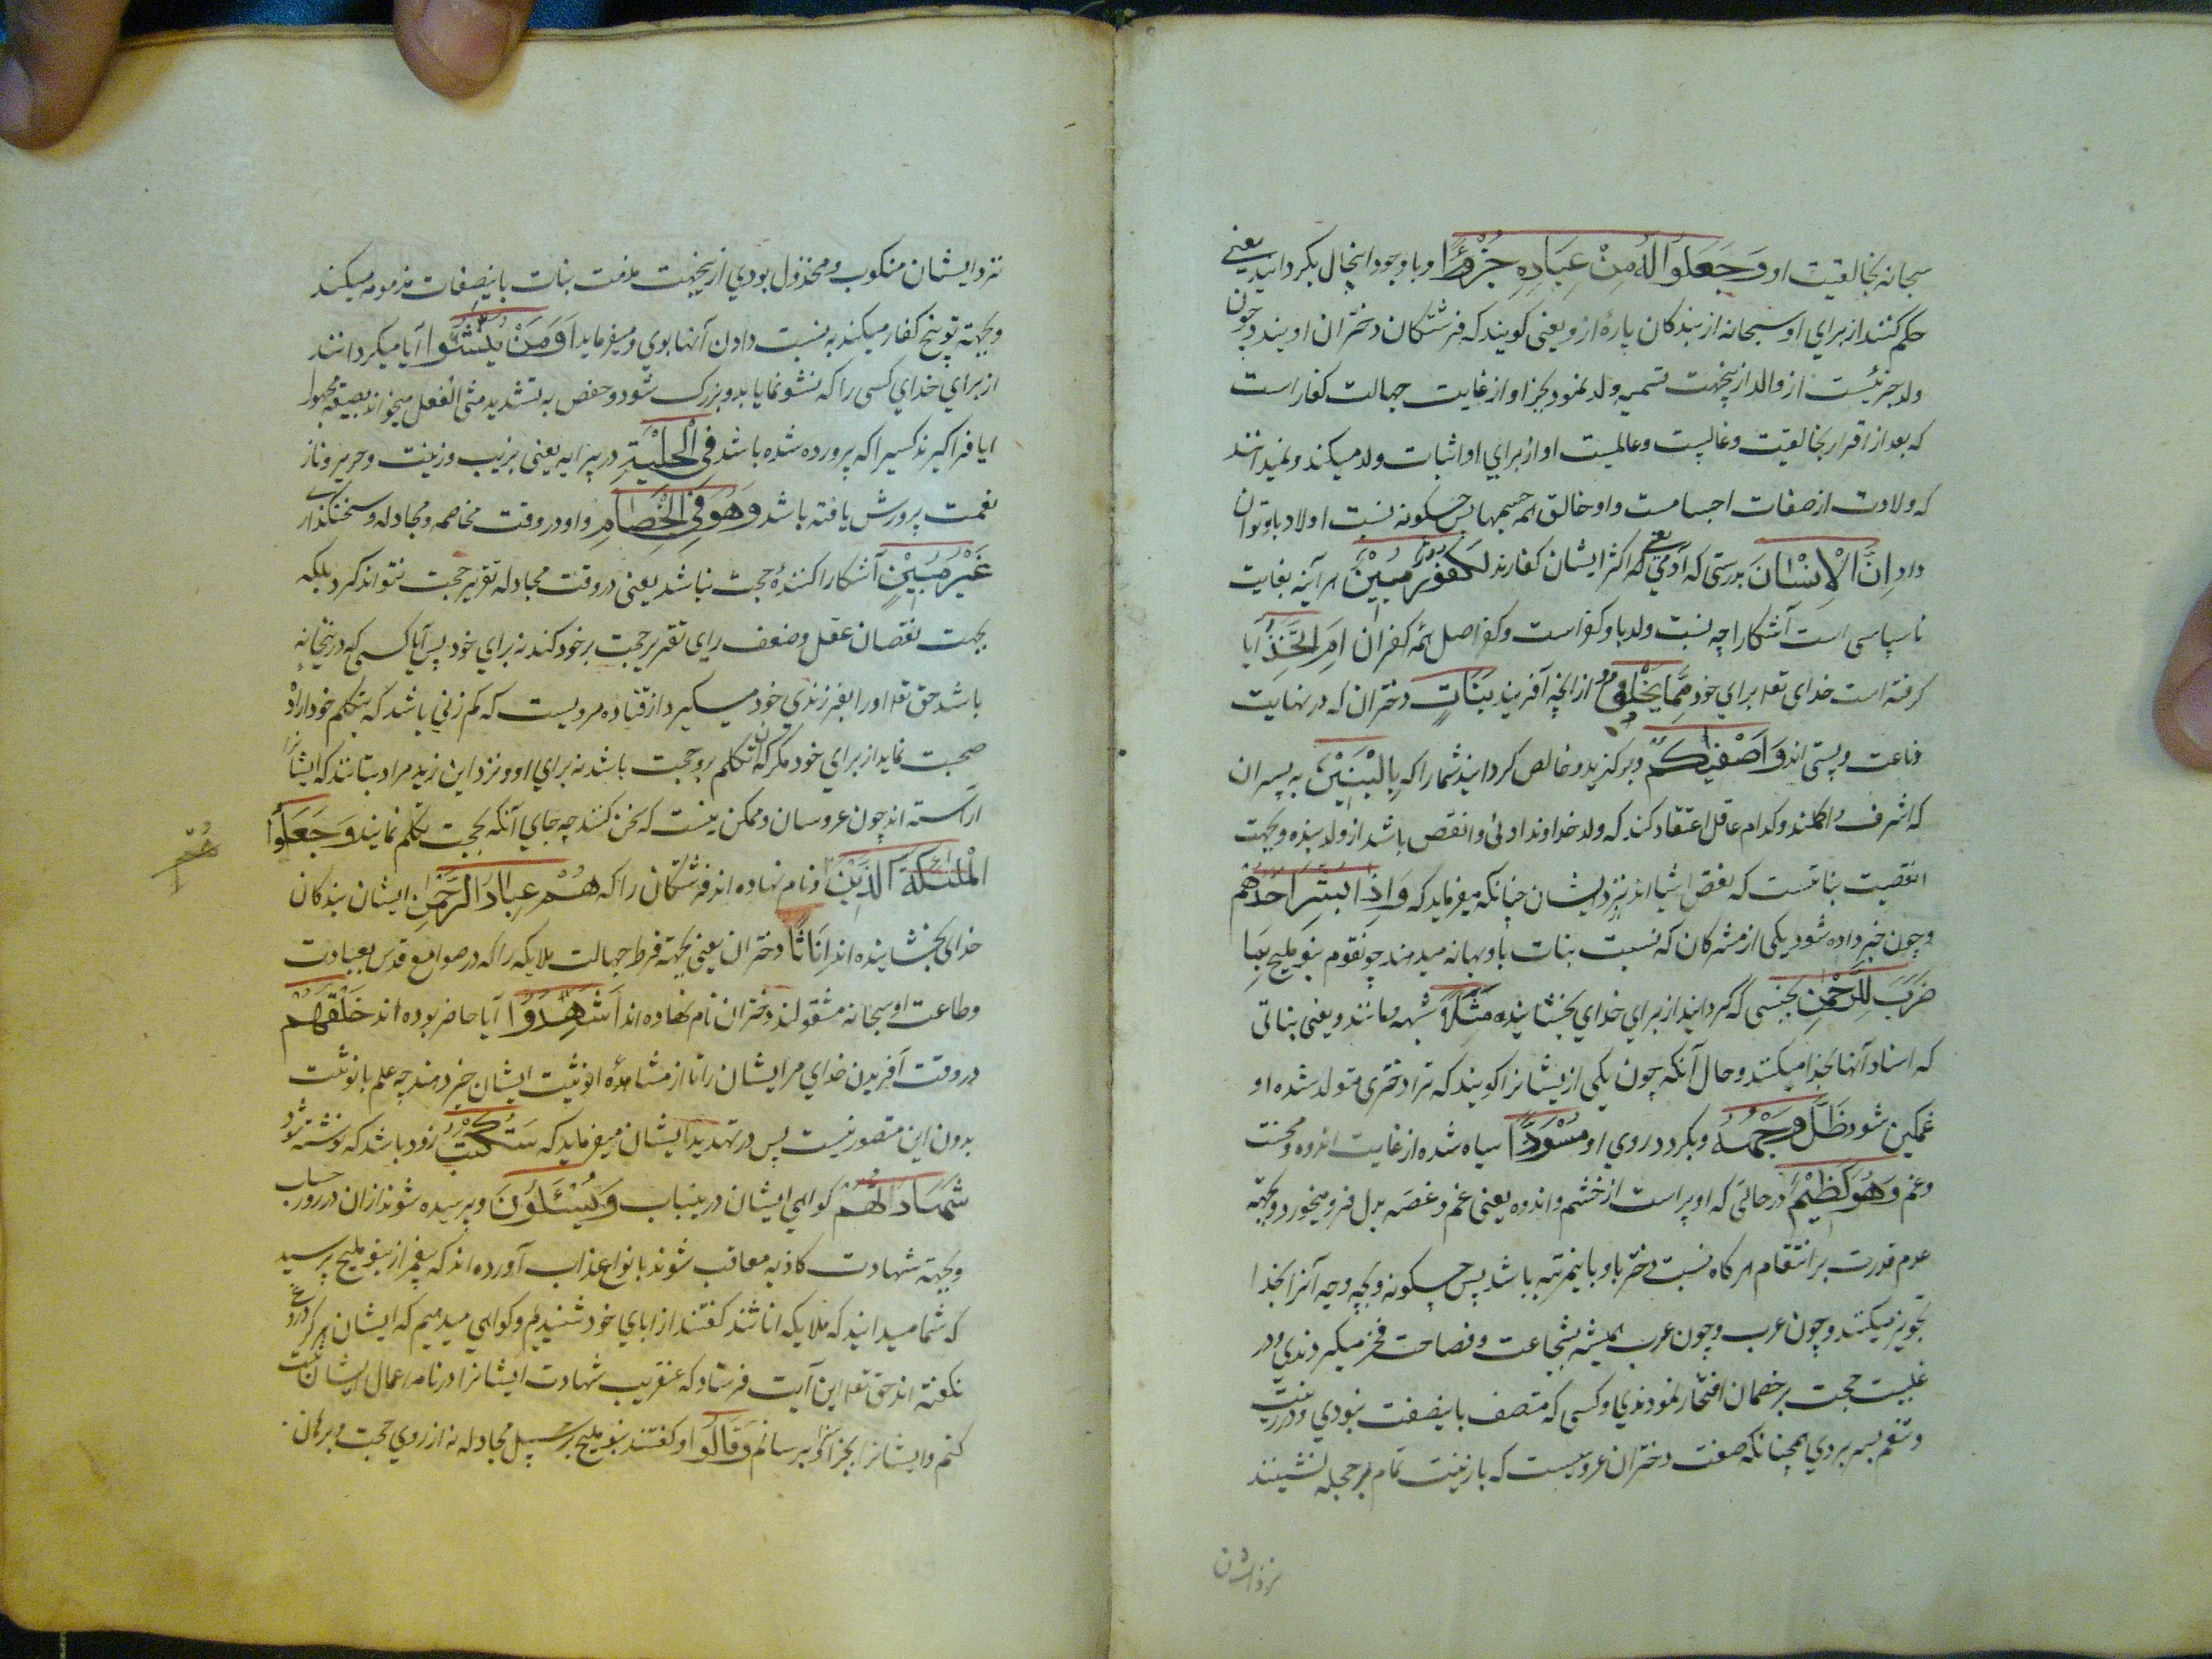 سبحانه بخالقیت او وَجَعَلُوا لَهُ مِنْ عِبَادِهِ جُزْءًا و با وجود اینحال بگردانیدند یعنی
حکم کنند از برای او سبحانه از بندکان پارهٔ از و یعنی کویند که فرشتکان دختران اویند و چون
ولد جزئیست از والد ازینجهت تسمیه ولد نمود بجزا و از غایت جهالت کفار است
که بعد از اقرار بخالقیت و غالبیت و عالمیت او از برای او اثبات ولد میکند و نمیدانند
که ولادت از صفات اجسامست و او خالق همه جسمها پس چکونه نسبت اولاد باو توان
داد اِنَّ الْاِنْسَانَ بدرستی که آدمی یعنی که اکثر ایشان کفارند لَکَفُورٌ مُبِیْنٌ هر آینه بغایت
ناسپاسی است آشکارا چه نسبت ولد باو کفر است و کفر اصل همه کفران اَمِ اتَّخَذَ آیا
کرفته است خدای تعا برای خود مِمَّا یَخْلُقُ از انچه آفریند بَنَاتٍ دختران که در نهایت
دناءت و پستی اند وَاَصْفٰیکُمْ و برکزید و خالص کردانید شما را که بِالْبَنِیْنَ به پسران
که اشرف و اکملند و کدام عاقل اعتقاد کند که ولد خداوند ادنی و انقص باشد از ولد بنده و بجهت
انقصیت بناتست که بغض اشیا اند نزد ایشان چنانکه میفرماید که وَاِذَا بُشِّرَ اَحَدُهُمْ
و چون خبر داده شود یکی از مشرکان که نسبت بنات باو سبحانه میدهند چو نقوم بنو ملیح بِمَا
ضَرَبَ لِلرَّحْمٰنِ بجنسی که کردانید از برای خدای بخشاینده مَثَلًا شبهه و مانند و یعنی بناتی
که اسناد آنها بخدا میکنند و حال آنکه چون یکی از یشانرا کویند که ترا دختری متولد شده او
غمکین شود ظَلَّ وَجْهُهُ و بکردد روی او مُسْوَدًّا سیاه شده از غایت اندوه و محنت
و غم وَهُوَ کَظِیْمٌ در حالتی که او پر است از خشم و اندوه یعنی غم و غصه بدل فرو میخورد و بجهة
عدم قدرت بر انتقام هر کاه نسبت دختر باو باینمرتبه باشد پس چکونه و بچه وجه آنرا بخدا
تجویز میکنند و چون عرب و چون عرب همیشه بشجاعت و فصاحت فخر میکردندی و در
غلبیت حجت بر خصمان افتخار نمودندی و کسی که متصف باینصفت نبودی و در زینت
و تنعم بسر بردی همچنانکه صفت دختران عروسیست که با زینت تمام در حجله نشینند
نزد ایشان
نزد ایشان منکوب و مخذول بودی ازینجهت مذمت بنات باینصفات مذمومه میکند
و بجهة توبیخ کفار میکند به نسبت دادن آنها بوی و میفرماید اَوَمَنْ یُنَشَّؤُا آیا میکردانند
از برای خدای کسی را که نشو نما یابد و بزرک شود و حفص به تشدید مثنی الفعل میخواند بصیغه مجهول
ایا فرا کیرند کسیرا که پرورده شده باشد فِی الْحِلْیَةِ در پیرایه یعنی بزیب و زینت و حریر و ناز
نعمت پرورش یافته باشد وَهُوَ فِی الْخِصَامِ و او در وقت مخاصمه و مجادله و سخنکذاری
غَیْرُ مُبِیْنٍ آشکارا کنندهٔ حجت نباشد یعنی در وقت مجادله تقریر حجت نتواند کرد بلکه
بجهت نقصان عقل و ضعف رای تقریر حجت بر خود کند نه برای خود پس آیا کسی که درینحانه
باشد حق تعا او را بفرزندی خود میکیرد از قتاده مرویست که کم زنی باشد که بتکلم خود اراده
صحبت نماید از برای خود مکر که آن تکلم برو حجت باشد نه برای او و نزد ابن زید مراد بتانند که ایشانرا
آراسته اند چون عروسان و ممکن نیست که سخن کنند چه جای آنکه بحجت تکلم نمایند وَجَعَلُوا
الْمَلٰئِکَةَ الَّذِیْنَ و نام نهاده اند فرشتکان را که هُمْ عِبَادُ الرَّحْمٰنِ ایشان بندکان
خدای بخشاینده اند اِنَاثًا دختران یعنی بجهة فرط جهالت ملایکه را که در صوامع قدس بعبادت
و طاعت او سبحانه مشغولند دختران نام نهاده اند اَشَهِدُوْا آیا حاضر بوده اند خَلْقَهُمْ
در وقت آفریدن خدای مر ایشان را تا از مشاهدهٔ انوثیت ایشان خبر دهند چه علم بانوثت
بدون این متصور نیست پس در تهدید ایشان میفرماید که سَتُکْتَبُ زود باشد که نوشته شود
شَهَادَتُهُمْ کواهی ایشان درینباب وَیُسْئَلُوْنَ و پرسیده شوند ازان در روز حساب
و بجهة شهادت کاذبه معاقب شوند بانواع عذاب آورده اند که پیغمبر از بنو ملیح پرسید
که شما میدانید که ملایکه اناثند کفتند از ابای خود شنیدیم و کواهی میدهیم که ایشان هرکز دروغ
نکفته اند حق تعا این آیت فرستاد که عنقریب شهادت ایشانرا در نامه اعمال ایشان ثبت
کنم و ایشانرا بجزا آن برسانم وَقَالُوا و کفتند بنو ملیح بر سبیل مجادله نه از روی حجت و برهان